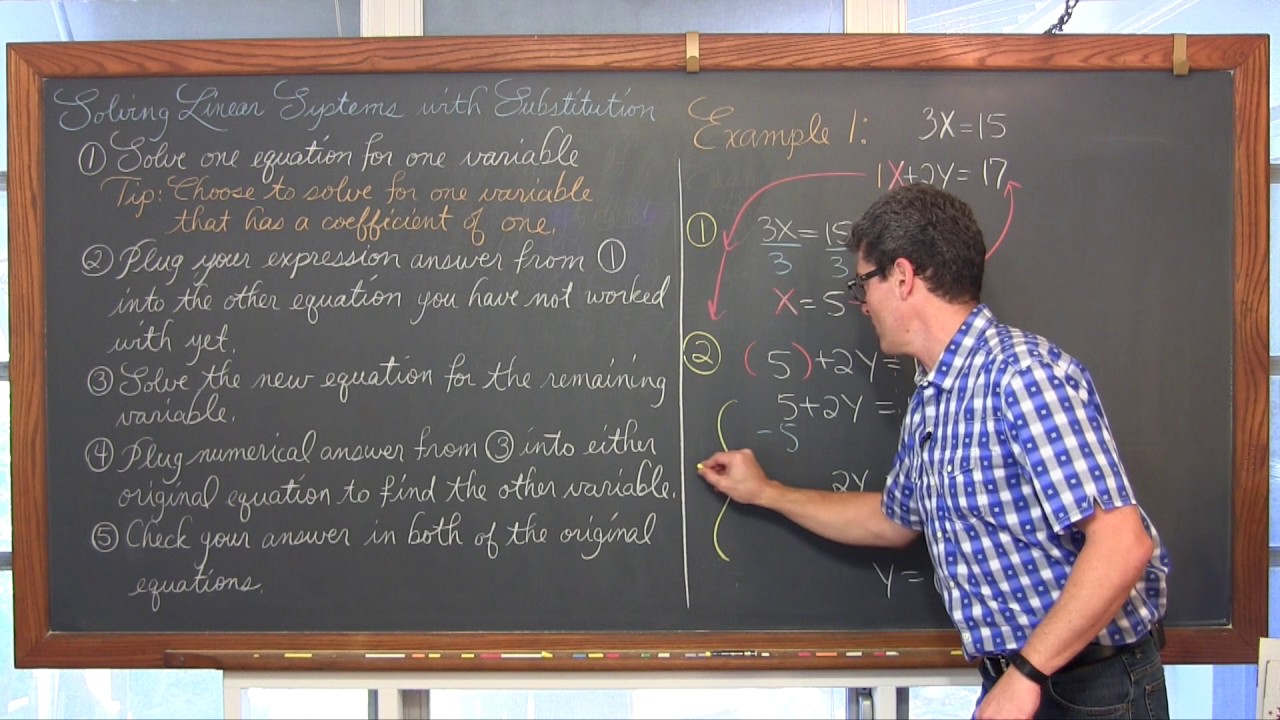 Solving Linear Systems with Substitution
① Solve one equation for one variable
Tip: Choose to solve for one variable
that has a coefficient of one.
② Plug your expression answer from ①
into the other equation you have not worked
with yet.
③ Solve the new equation for the remaining
variable.
④ Plug numerical answer from ③ into either
original equation to find the other variable.
⑤ Check your answer in both of the original
equations.
Example 1: 3X=15
1X+2Y=17
① 3X=15
3 3
X=5
② (5)+2Y=
5+2Y=
-5
2Y
Y=